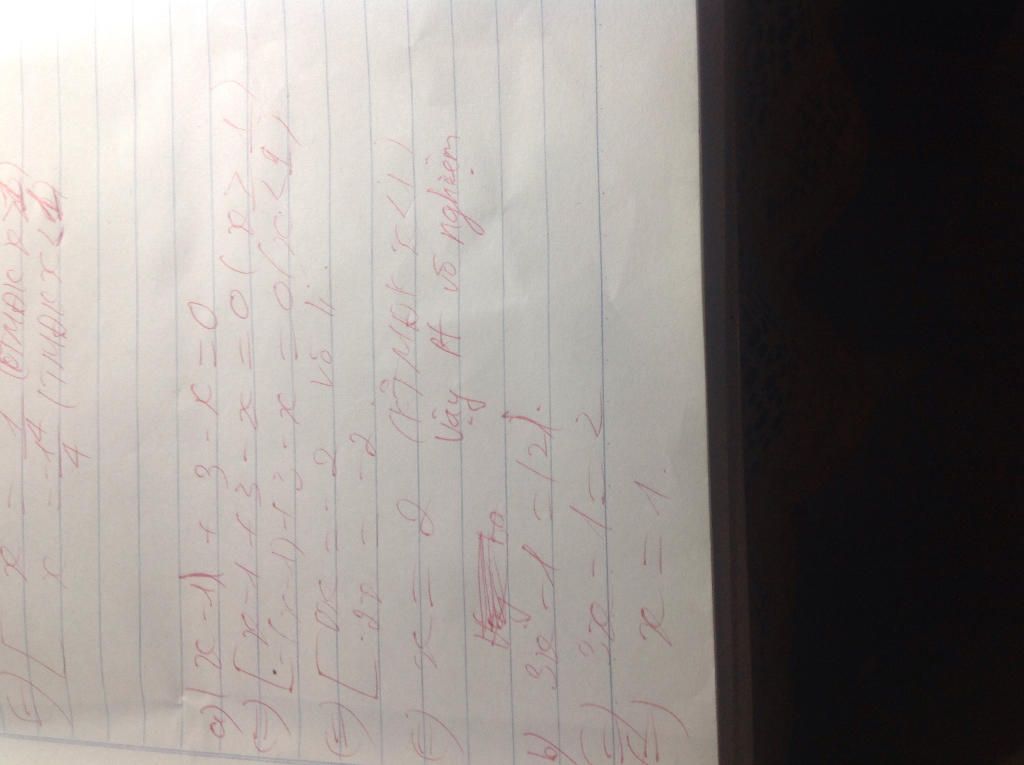 x = 1
(=) [ x = -1/4 (TMĐK x < 1)
a) |x-1| + 3 - x = 0
(=) [ x - 1 + 3 - x = 0 ( x ≥ 1 )
-(x-1) + 3 - x = 0 ( x < 1 )
(=) [ 0x = -2 vô lí
-2x = -2
(=) x = 2 (KTMĐK x < 1)
Vậy Pt vô nghiệm
b) 3x - 1 = |2|
(=) 3x - 1 = 2
(=) x = 1.